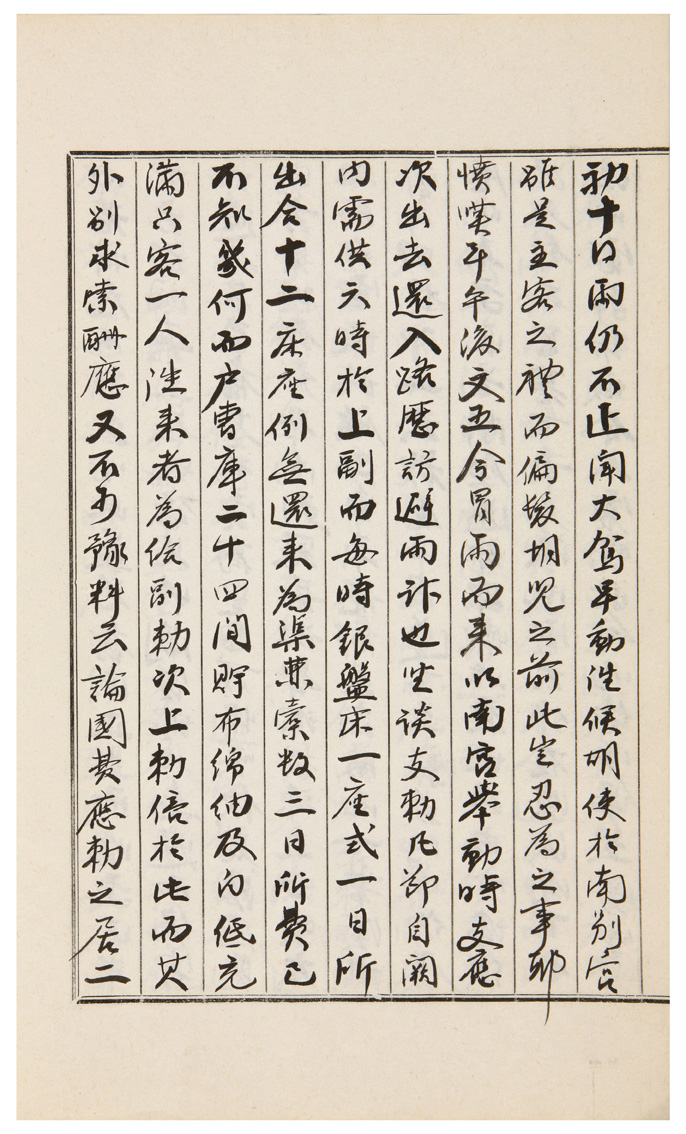 初十日雨仍不止聞大駕早動往候胡使於南別宮
雖是主客之禮而偏發胡兒之前此豈忍為之事耶
憤嘆耳午後文五令冒雨而來以南宮舉動時支應
次出去還入路歷訪避雨計也坐談支勅凡節自闕
內需供六時於上副而每時銀盤床一座式一日所
出合十二床座例無還來為渠輩索数三日所費已
不知幾何而户曹庫二十四間貯布綿紬及白紙充
滿只客一人往来者為給副勅次上勅倍於此而其
外別求索酬應又不可豫料云論國費應勅之居二